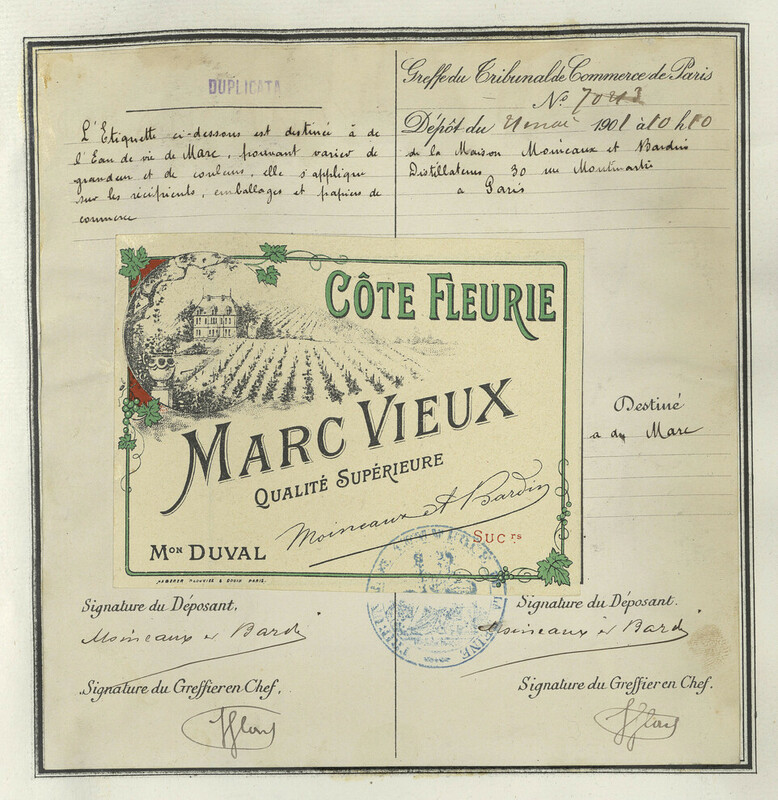 DUPLICATA
L'Etiquette ci-dessous est destinée à de
l'Eau de vie de Marc, pouvant varier de
grandeur et de couleurs, elle s'applique
sur les récipients, emballages et papiers de
commerce
Greffe du Tribunal de Commerce de Paris
No
Dépôt du 21 mai 1901 à 10 h 10
de la Maison Moineaux et Bardin
Distillateurs 30 rue Montmartre
à Paris
CÔTE FLEURIE
MARC VIEUX
QUALITÉ SUPÉRIEURE
Moineaux et Bardin
SUCrs
MON DUVAL
& DAVID PARIS.
Destiné
a du Marc
TRIBUNAL DE COMMERCE DE LA SEINE
Signature du Déposant.
Moineaux et Bardin
Signature du Greffier en Chef.
Signature du Déposant.
Moineaux et Bardin
Signature du Greffier en Chef.